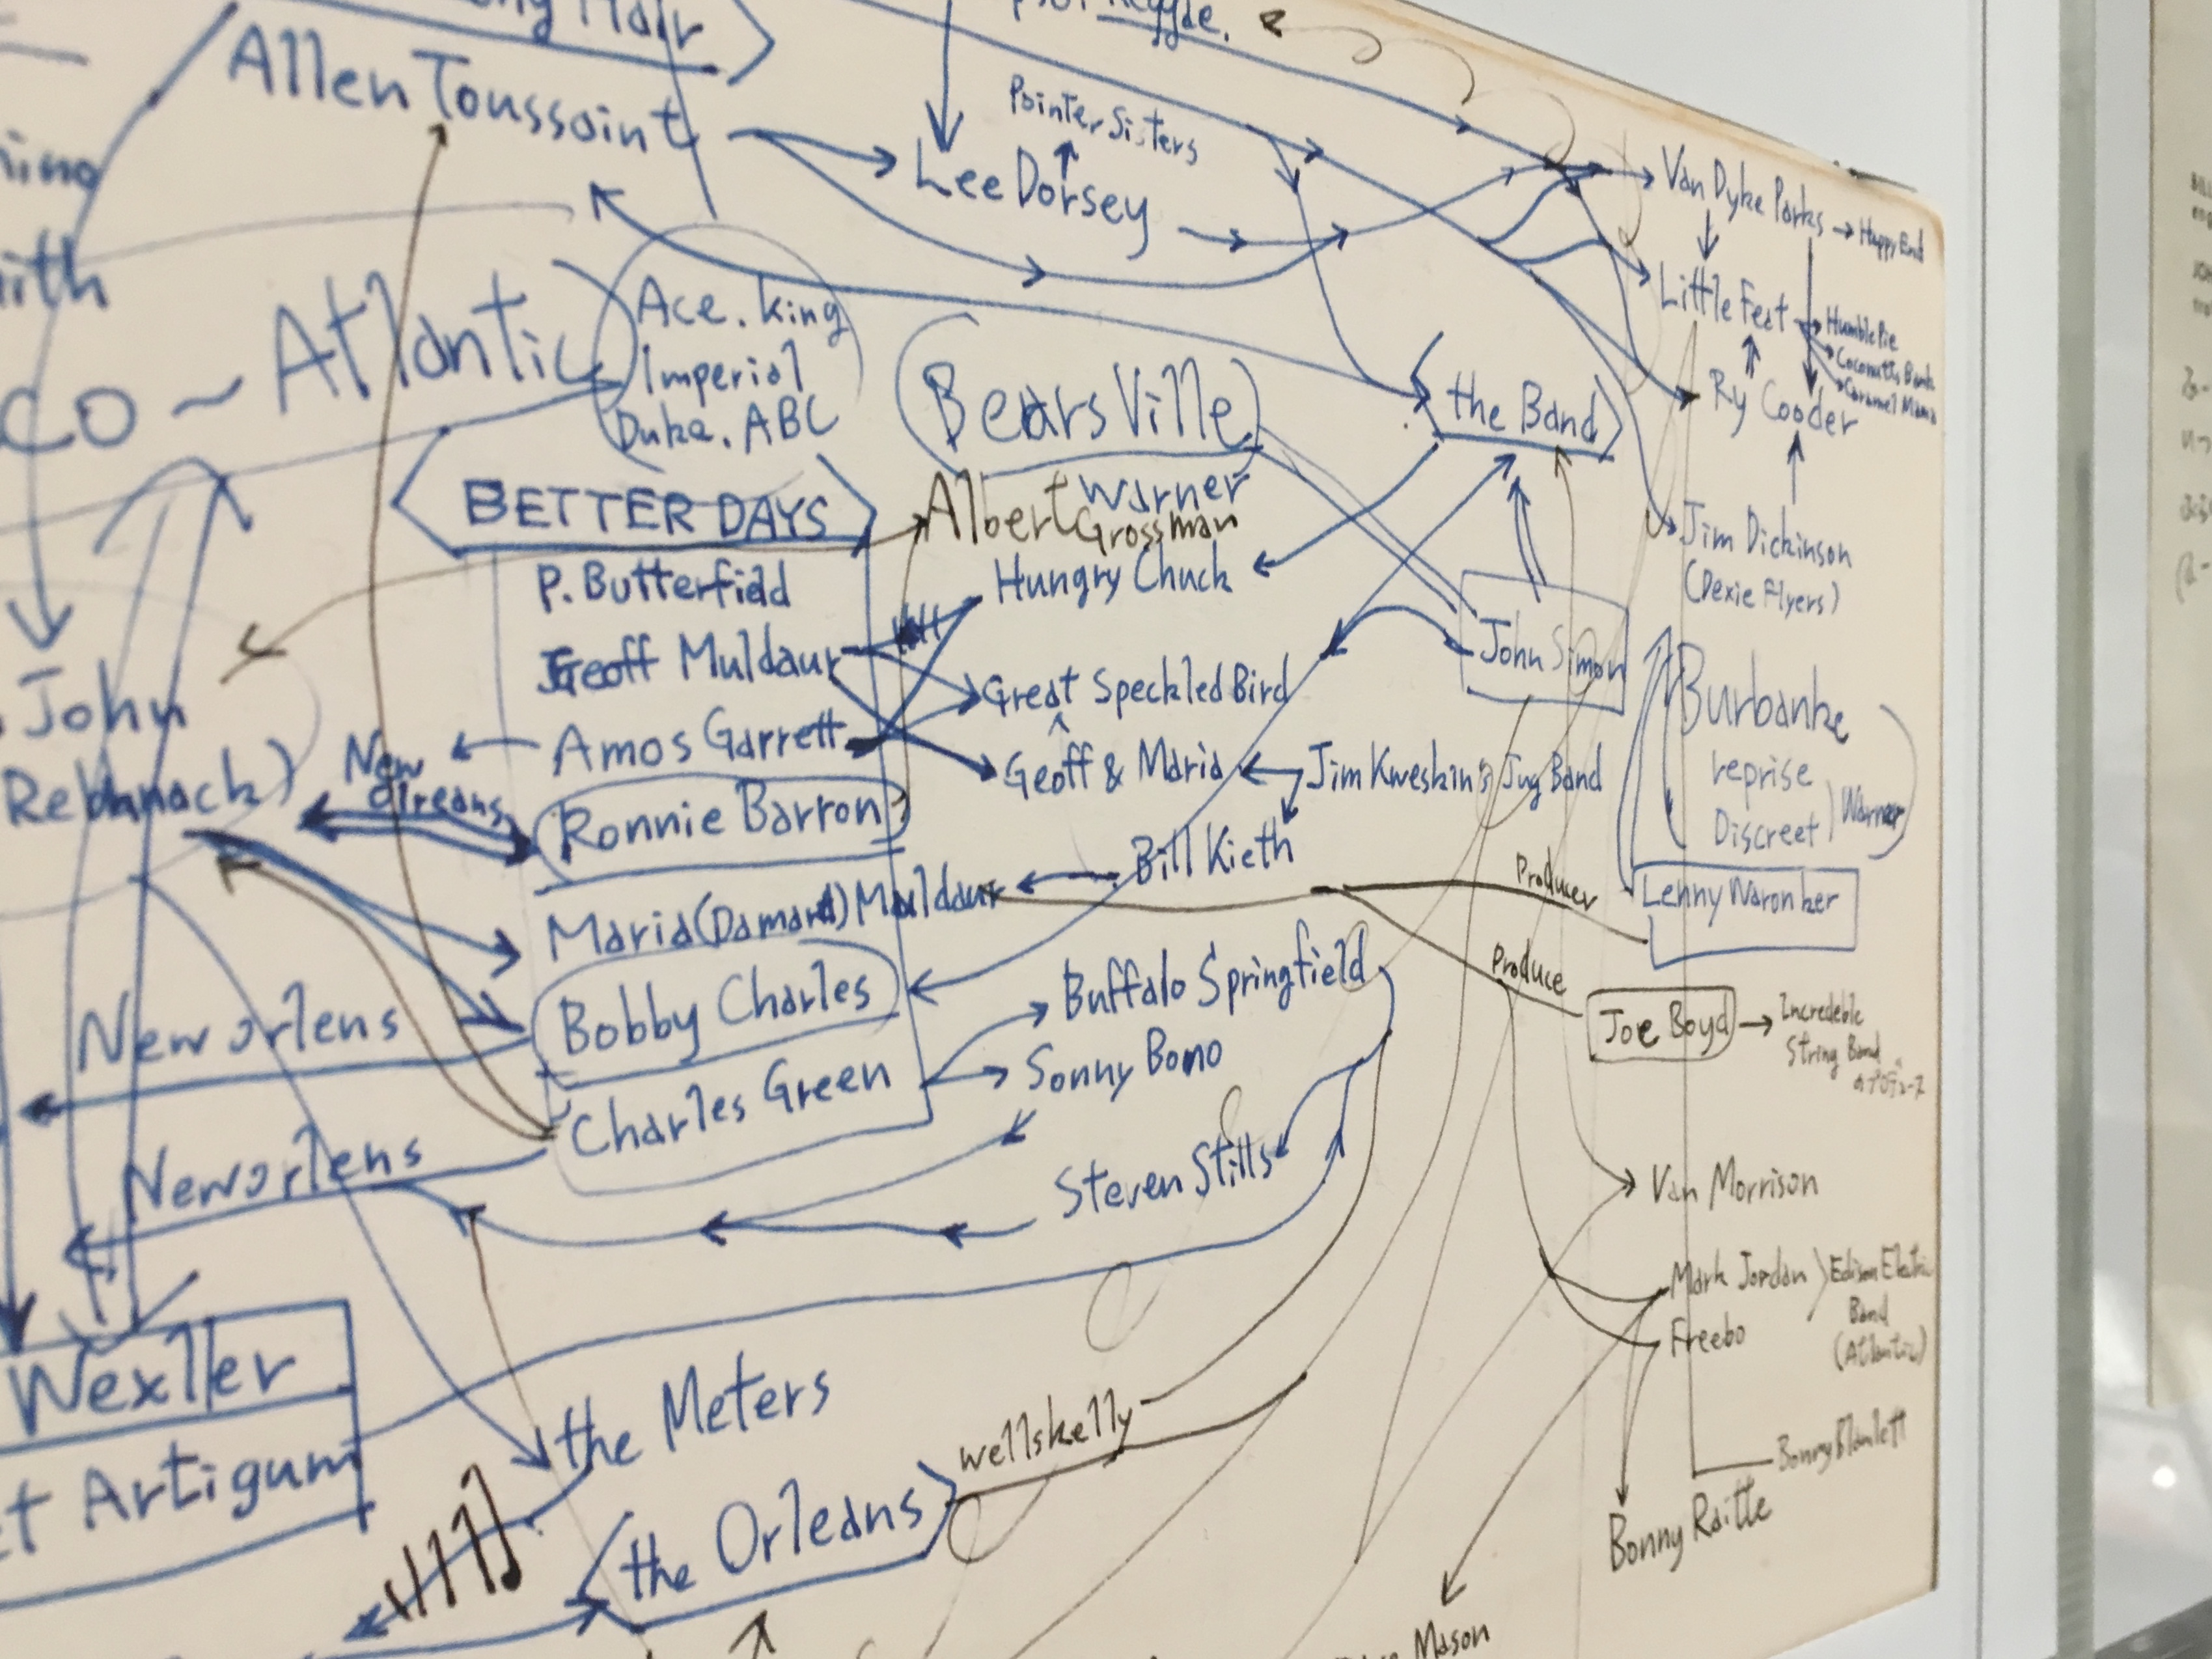 Hair
Reggae.
Allen Toussaint
Pointer Sisters
Lee Dorsey
Van Dyke Parks → Happy End
Little Feat
Humble Pie
Coconuts Bank
Caramel Mama
Ry Cooder
CO ~ Atlantic
Ace. King
Imperial
Duke. ABC
BearsVille
Warner
Albert Grossman
the Band
BETTER DAYS
P. Butterfield
Geoff Muldaur
Amos Garrett
Ronnie Barron
Maria (Damard) Muldaur
Bobby Charles
Charles Green
Hungry Chuck
Great Speckled Bird
Geoff & Maria
Jim Kweskin's Jug Band
Bill Kieth
John Simon
Jim Dickinson
(Dexie Flyers)
Burbanke
reprise
Discreet
Warner
Lenny Waronker
Producer
Produce
Joe Boyd → Incredeble
String Band
John
Rebbnack)
New
Olreans
Neworlens
Neworlens
Buffalo Springfield
Sonny Bono
Steven Stills
Van Morrison
Mark Jordan
Freebo
Edison Electric
Band
(Atlantic)
Bonny Blamlett
Bonny Raitte
Wexller
et Artigum
the Meters
the Orleans
wellskelly
Mason